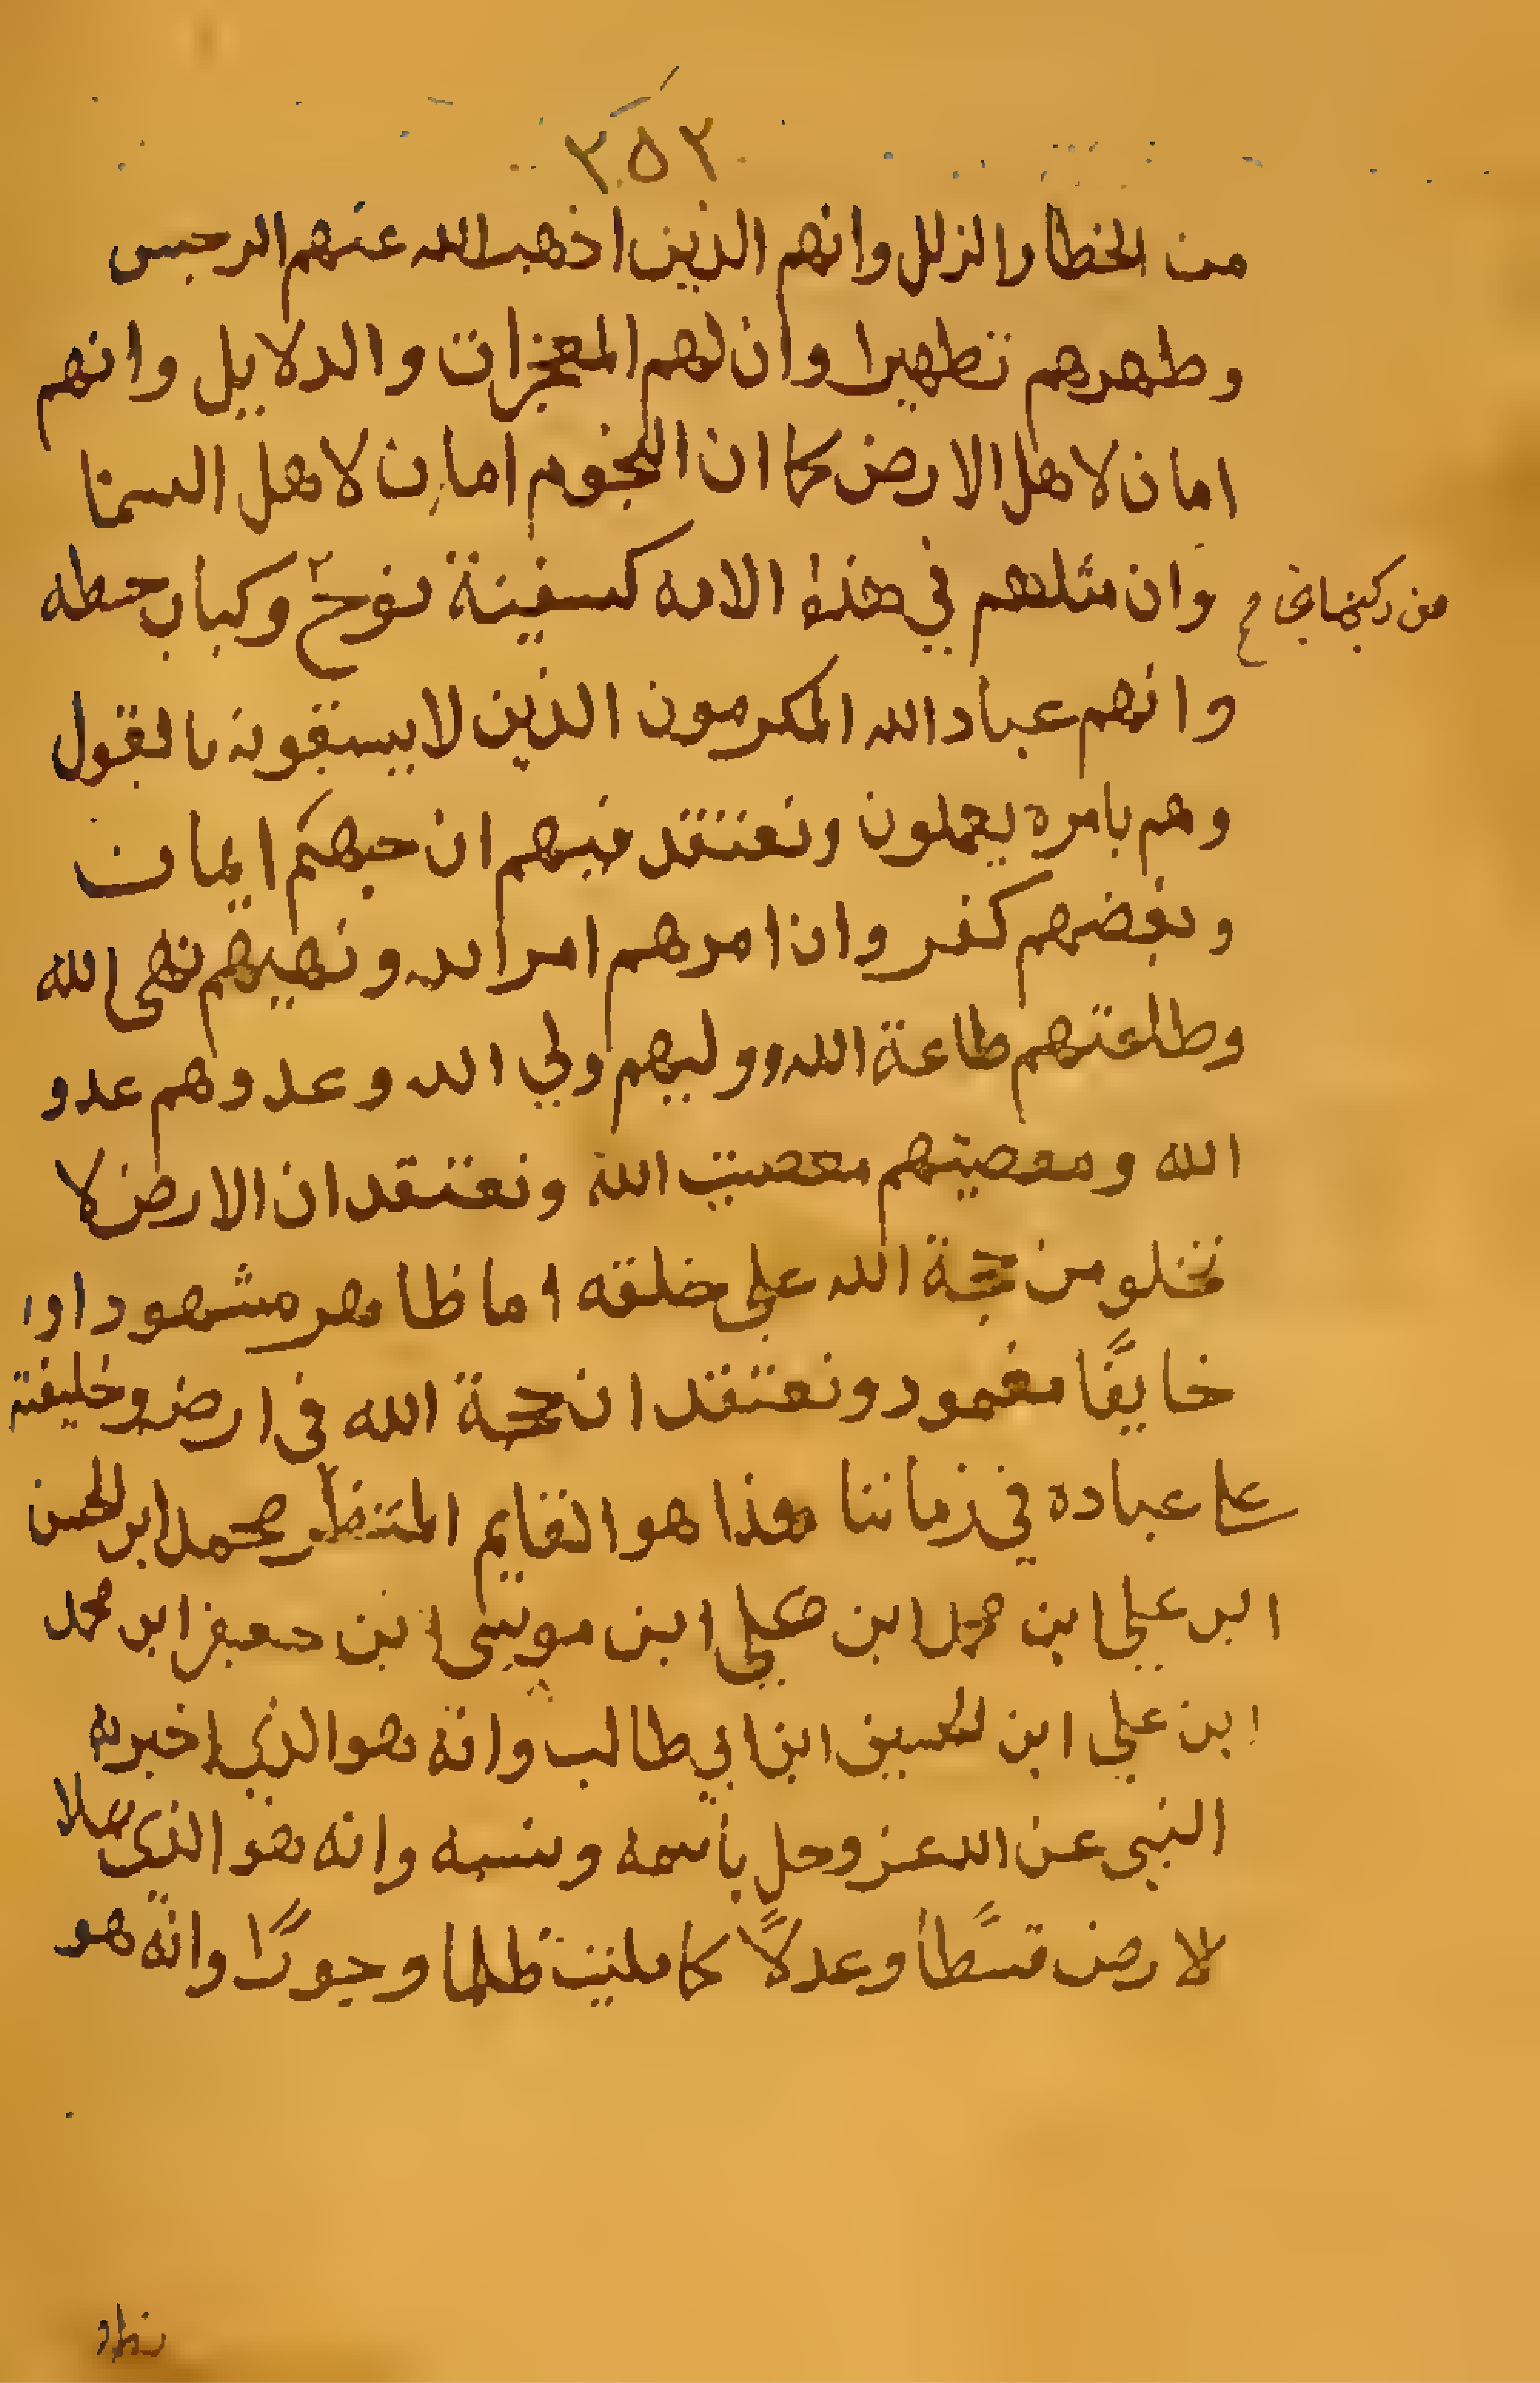 ٣٥٢
من الخطا والزلل وانهم الذين اذهب الله عنهم الرجس
وطهرهم تطهيرا وان لهم المعجزات والدلايل وانهم
امان لاهل الارض كما ان النجوم امان لاهل السما
وان مثلهم في هذه الامه كسفينة نوح وكباب حطه
من ركبها نجى
وانهم عباد الله المكرمون الذين لا يسبقونه بالقول
وهم بامره يعملون ونعتقد فيهم ان حبهم ايمان
وبغضهم كفر وان امرهم امر الله ونهيهم نهى الله
وطاعتهم طاعة الله ووليهم ولي الله وعدوهم عدو
الله ومعصيتهم معصيت الله ونعتقد ان الارض لا
تخلو من حجة الله على خلقه اما ظاهر مشهود او
خايفًا مغمود ونعتقد ان حجة الله فى ارضه وخليفته
على عباده في زماننا هذا هو القايم المنتظر محمد ابن الحسن
ابن علي ابن محمد ابن علي ابن موسى ابن جعفر ابن محمد
ابن علي ابن الحسين ابن ابي طالب وانه هو الذي اخبر به
النبى عن الله عز وجل باسمه ونسبه وانه هو الذى يملا
لارض قسطًا وعدلًا كما مليت ظلما وجورًا وانه هو